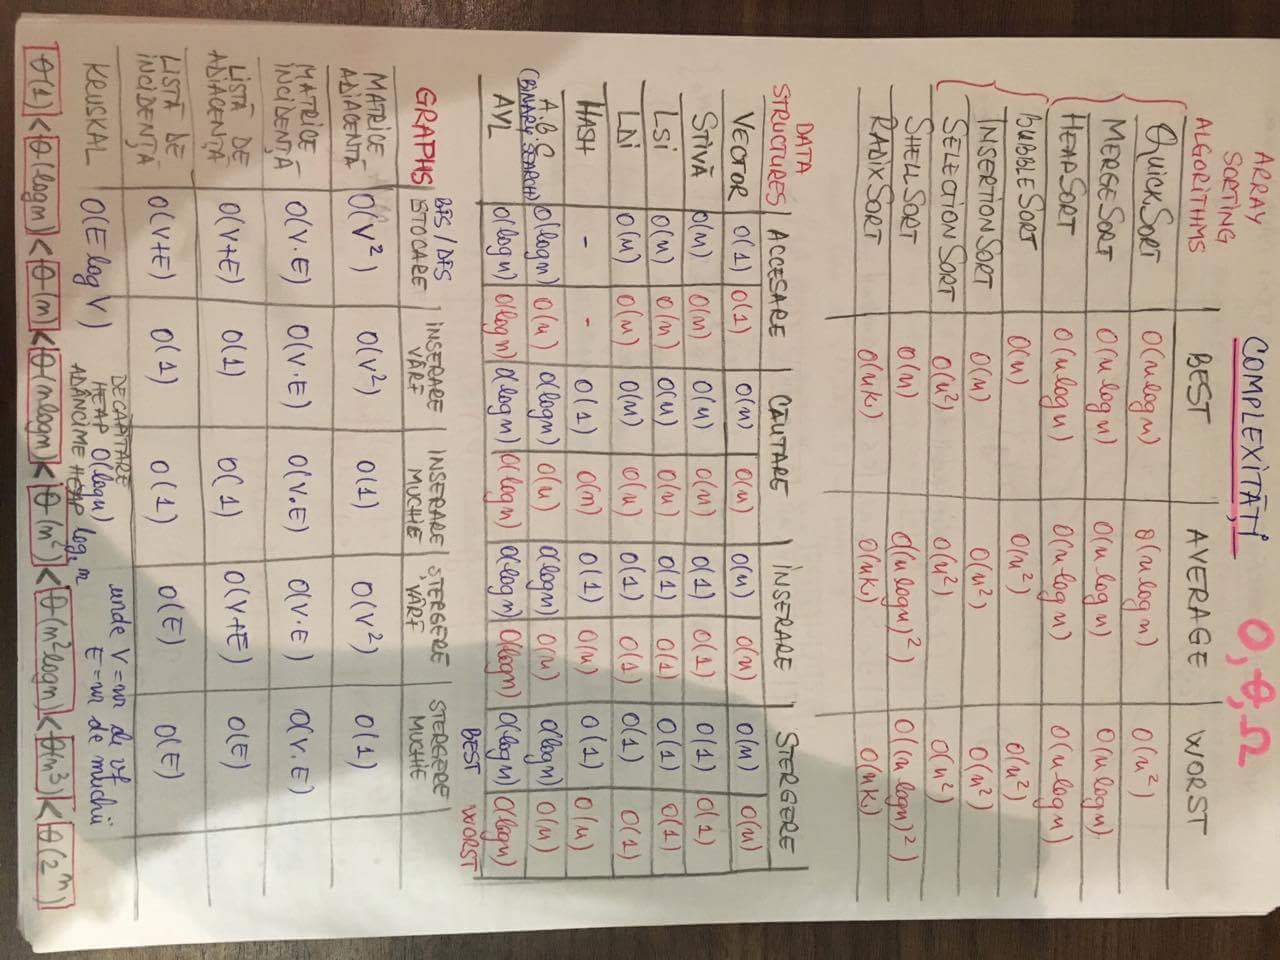 ARRAY SORTING ALGORITHMS
COMPLEXITĂȚI O, θ, Ω
BEST AVERAGE WORST
QUICKSORT O(n log n) θ(n log n) O(n²)
MERGESORT O(n log n) O(n log n) O(n log n)
HEAPSORT O(n log n) O(n log n) O(n log n)
BUBBLESORT O(n) O(n²) O(n²)
INSERTIONSORT O(n) O(n²) O(n²)
SELECTIONSORT O(n²) O(n²) O(n²)
SHELLSORT O(n) O((n log n)²) O((n log n)²)
RADIXSORT O(nk) O(nk) O(nk)
DATA STRUCTURES ACCESARE CĂUTARE ÎNSERARE STERGERE
VECTOR O(1) O(1) O(n) O(n) O(n) O(n) O(n) O(n)
STIVĂ O(n) O(n) O(n) O(n) O(1) O(1) O(1) O(1)
LSI O(n) O(n) O(n) O(n) O(1) O(1) O(1) O(1)
LDI O(n) O(n) O(n) O(n) O(1) O(1) O(1) O(1)
HASH - - O(1) O(n) O(1) O(n) O(1) O(n)
A.B.C O(log n) O(n) O(log n) O(n) O(log n) O(n) O(log n) O(n)
(BINARY SEARCH)
AVL O(log n) O(log n) O(log n) O(log n) O(log n) O(log n) O(log n) O(log n)
BEST WORST
GRAPHS BFS / DFS STOCARE ÎNSERARE VÂRF INSERARE MUCHIE STERGERE VÂRF STERGERE MUCHIE
MATRICE ADIACENTĂ O(V²) O(V²) O(1) O(V²) O(1)
MATRICE INCIDENȚĂ O(V·E) O(V·E) O(V.E) O(V·E) O(V.E)
LISTĂ DE ADIACENȚĂ O(V+E) O(1) O(1) O(V+E) O(E)
LISTĂ DE INCIDENȚĂ O(V+E) O(1) O(1) O(E) O(E)
KRUSKAL O(E log V)
DECAPITARE
HEAP O(log n)
ADÂNCIME HEAP log₂ n
unde V = nr de vf
E = nr de muchii
θ(1) < θ(log n) < θ(n) < θ(n log n) < θ(n²) < θ(n² log n) < θ(n³) < θ(2ⁿ)